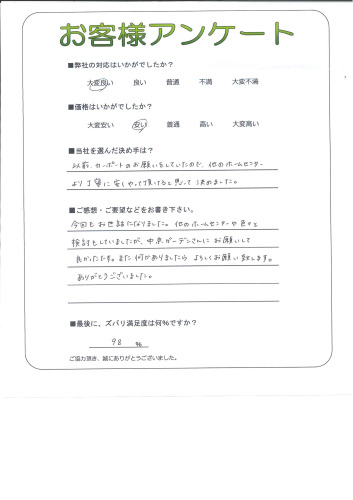 お客様アンケート
■弊社の対応はいかがでしたか?
大変良い 良い 普通 不満 大変不満
■価格はいかがでしたか?
大変安い 安い 普通 高い 大変高い
■当社を選んだ決め手は?
以前、カーポートのお願いをしていたので、他のホームセンター
より丁寧に安くやって頂けると思って決めました。
■ご感想・ご要望などをお書き下さい。
今回もお世話になりました。他のホームセンターや色々と
検討もしていましたが、中京ガーデンさんにお願いして
良かったです。また何かありましたらよろしくお願い致します。
ありがとうございました。
■最後に、ズバリ満足度は何%ですか?
98 %
ご協力頂き、誠にありがとうございました。